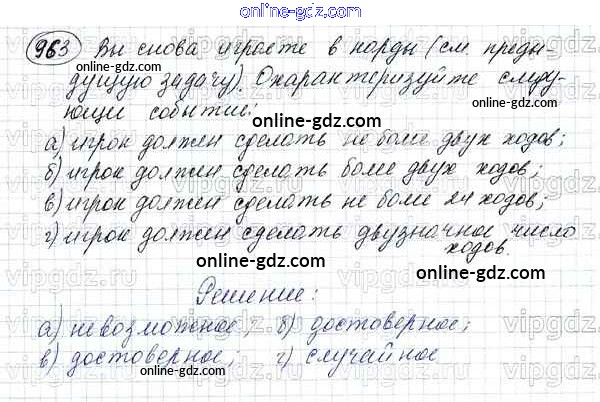 online-gdz.com
963 Вы снова играете в нарды (см. преды-
дущую задачу). Охарактеризуйте следу-
ющие события:
online-gdz.com
а) игрок должен сделать не более двух ходов;
б) игрок должен сделать более двух ходов;
в) игрок должен сделать не более 24 ходов;
г) игрок должен сделать двузначное число
ходов.
online-gdz.com
Решение:
а) невозможное; б) достоверное;
в) достоверное; г) случайное
online-gdz.com
online-gdz.com
vipgdz.ru